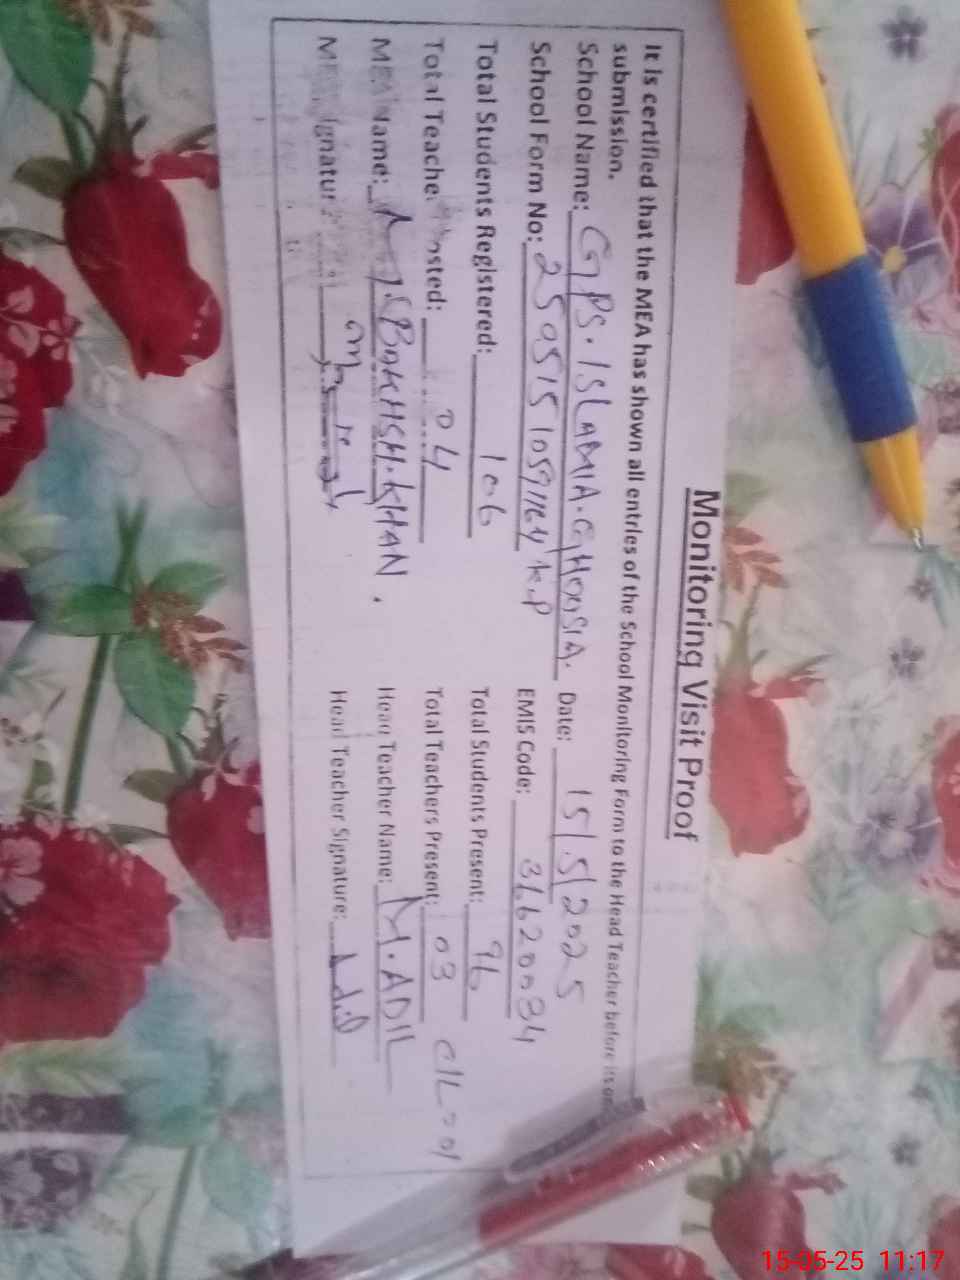 Monitoring Visit Proof
It is certified that the MEA has shown all entries of the School Monitoring Form to the Head Teacher before its on
submission.
School Name: GPS. ISLAMIA. GHOUSIA. Date: 15/5/2025
School Form No: EMIS Code: 36620084
Total Students Registered: 106 Total Students Present: 96
Total Teacher Posted: 04 Total Teachers Present: 03 C/L = 01
MEA Name: BAKHSH. KHAN. Head Teacher Name: M. ADIL
MEA Signature Head Teacher Signature: Adil
15-05-25 11:17